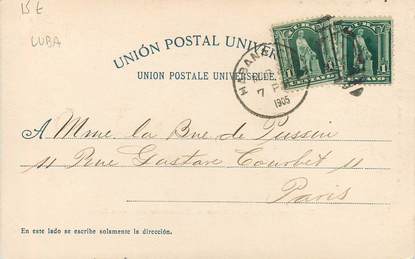 15 €
CUBA
UNIÓN POSTAL UNIVER
UNION POSTALE UNIVERSELLE.
HABANA
7 P
1905
CUBA CUBA
1 CENTAVO 1
1 CENTAVO 1
A Mme. la Bne de Pussin
11 Rue Gustave Courbet 11
Paris
En este lado se escribe solamente la dirección.